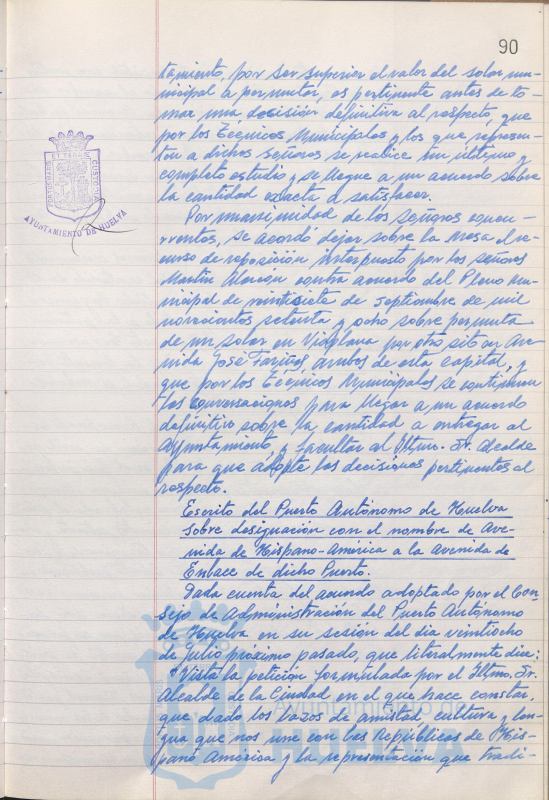 90
tamiento, por ser superior el valor del solar mu-
nicipal a permutar, es pertinente antes de to-
mar una decisión definitiva al respecto, que
por los Técnicos Municipales y los que represen-
tan a dichos señores se realice un último y
completo estudio y se llegue a un acuerdo sobre
la cantidad exacta a satisfacer.
Por unanimidad de los señores concu-
rrentes, se acordó dejar sobre la mesa el re-
curso de reposición interpuesto por los señores
Martín Alarcón contra acuerdo del Pleno Mu-
nicipal de veintisiete de septiembre de mil
novecientos setenta y ocho sobre permuta
de un solar en Viaplana por otro sito en Ave-
nida José Fariñas ambos de esta capital, y
que por los Técnicos Municipales se continuen
las conversaciones para llegar a un acuerdo
definitivo sobre la cantidad a entregar al
Ayuntamiento, y facultar al Iltmo. Sr. Alcalde
para que adopte las decisiones pertinentes al
respecto.
Escrito del Puerto Autónomo de Huelva
sobre designación con el nombre de Ave-
nida de Hispano-América a la Avenida de
Enlace de dicho Puerto.
Dada cuenta del acuerdo adoptado por el Con-
sejo de Administración del Puerto Autónomo
de Huelva en su sesión del dia veintiocho
de julio próximo pasado, que literalmente dice:
"Vista la petición formulada por el Iltmo. Sr.
Alcalde de la Ciudad en el que hace constar,
que dado los lazos de amistad cultura y len-
gua que nos une con las Repúblicas de His-
pano América y la representación que tradi-
PORTUS MARIS ET TERRAE CUSTODIA
AYUNTAMIENTO DE HUELVA
Ayuntamiento de
HUELVA